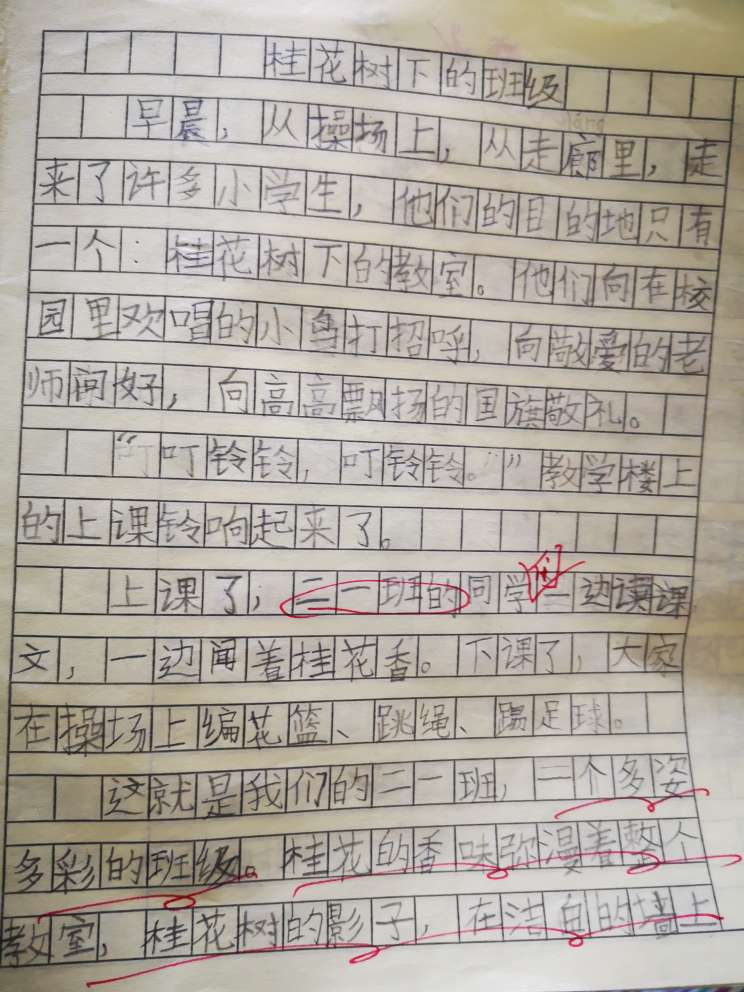 桂花树下的班级
早晨，从操场上，从走廊里，走
来了许多小学生，他们的目的地只有
一个：桂花树下的教室。他们向在校
园里欢唱的小鸟打招呼，向敬爱的老
师问好，向高高飘扬的国旗敬礼。
“叮叮铃铃，叮铃铃。”教学楼上
的上课铃响起来了。
上课了，二一班的同学一边读课
文，一边闻着桂花香。下课了，大家
在操场上编花篮、跳绳、踢足球。
这就是我们的二一班，一个多姿
多彩的班级。桂花的香味弥漫着整个
教室，桂花树的影子，在洁白的墙上